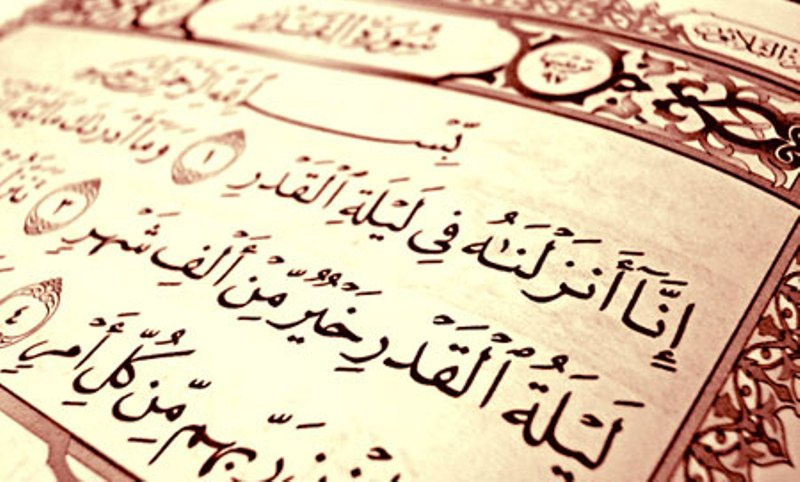 سورة القدر
بِّسۡمِ ٱللَّهِ ٱلرَّحۡمَٰنِ ٱلرَّحِيمِ
إِنَّآ أَنزَلۡنَٰهُ فِي لَيۡلَةِ ٱلۡقَدۡرِ ١ وَمَآ أَدۡرَىٰكَ مَا
لَيۡلَةُ ٱلۡقَدۡرِ خَيۡرٞ مِّنۡ أَلۡفِ شَهۡرٖ ٣
رَبِّهِم مِّن كُلِّ أَمۡرٖ ٤